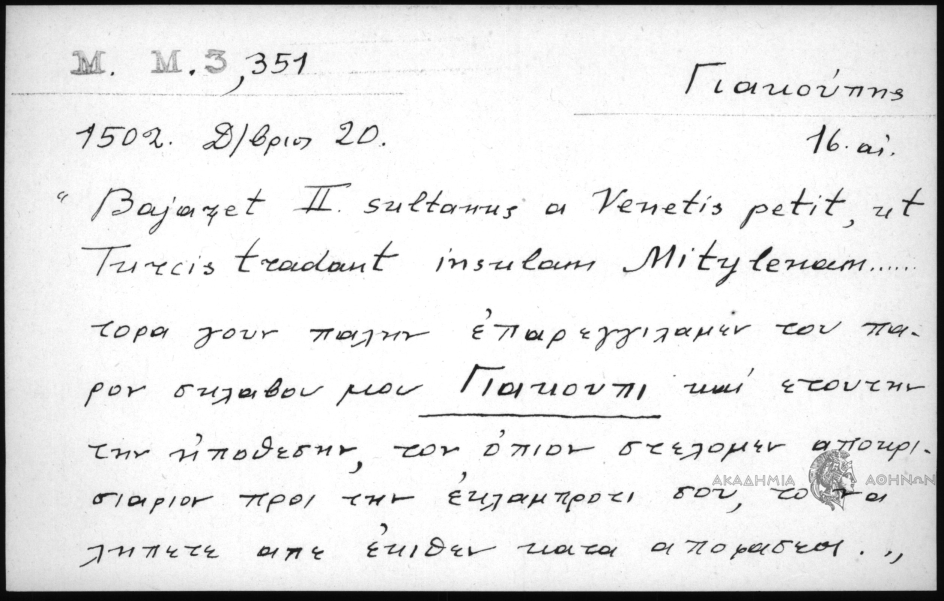 Μ. Μ. 3, 351
Γιακούπης
1502. Δ/βριος 20.
16. αἰ.
" Bajazet II. sultanus a Venetis petit, ut
Turcis tradant insulam Mitylenam......
τορα γουν παλην ἐπαρεγγιλαμεν του πα-
ρον σκλαβου μου Γιακουπι καί ετουτην
την ὑποθεσην, τον ὁπιον στελομεν αποκρι-
σιαριον προς την ἐκλαμπροτι σου, το να
ληπετε απε ἐκιθεν κατα αποφασεως. "
ΑΚΑΔΗΜΙΑ ΑΘΗΝΩΝ